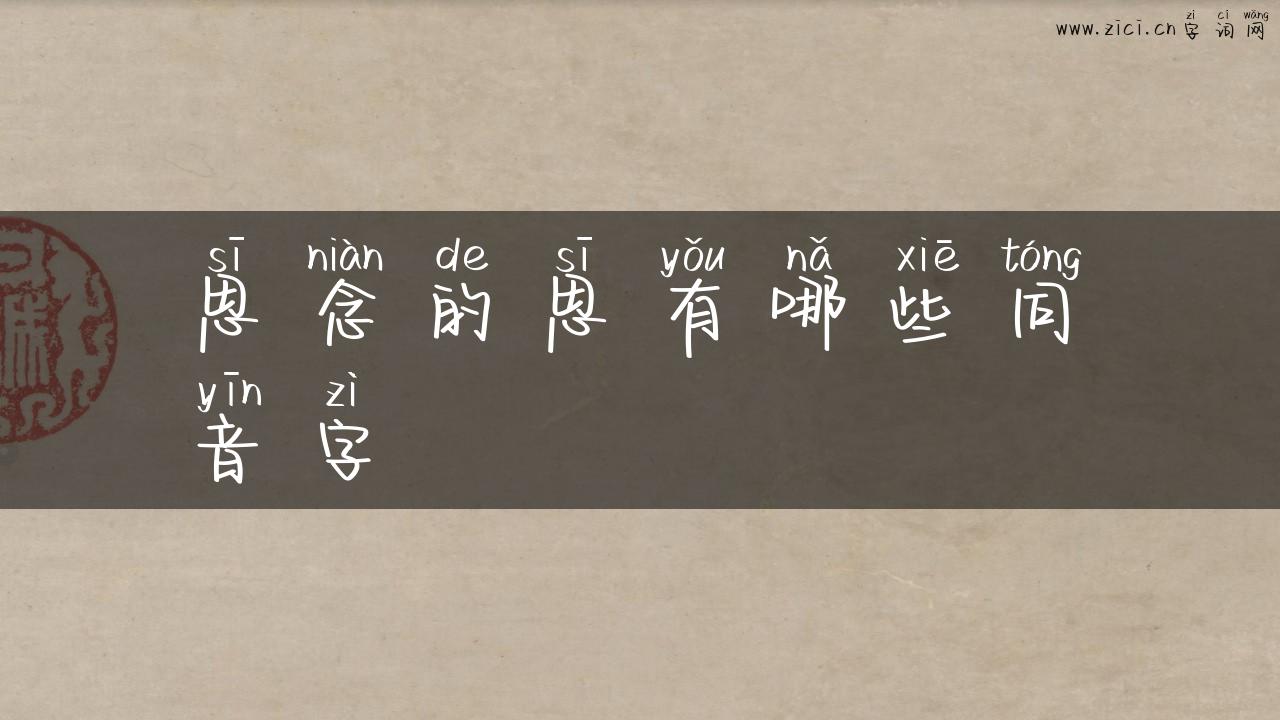 www.zici.cn 字词网
zì cí wǎng
sī niàn de sī yǒu nǎ xiē tóng
思念的思有哪些同
yīn zì
音字